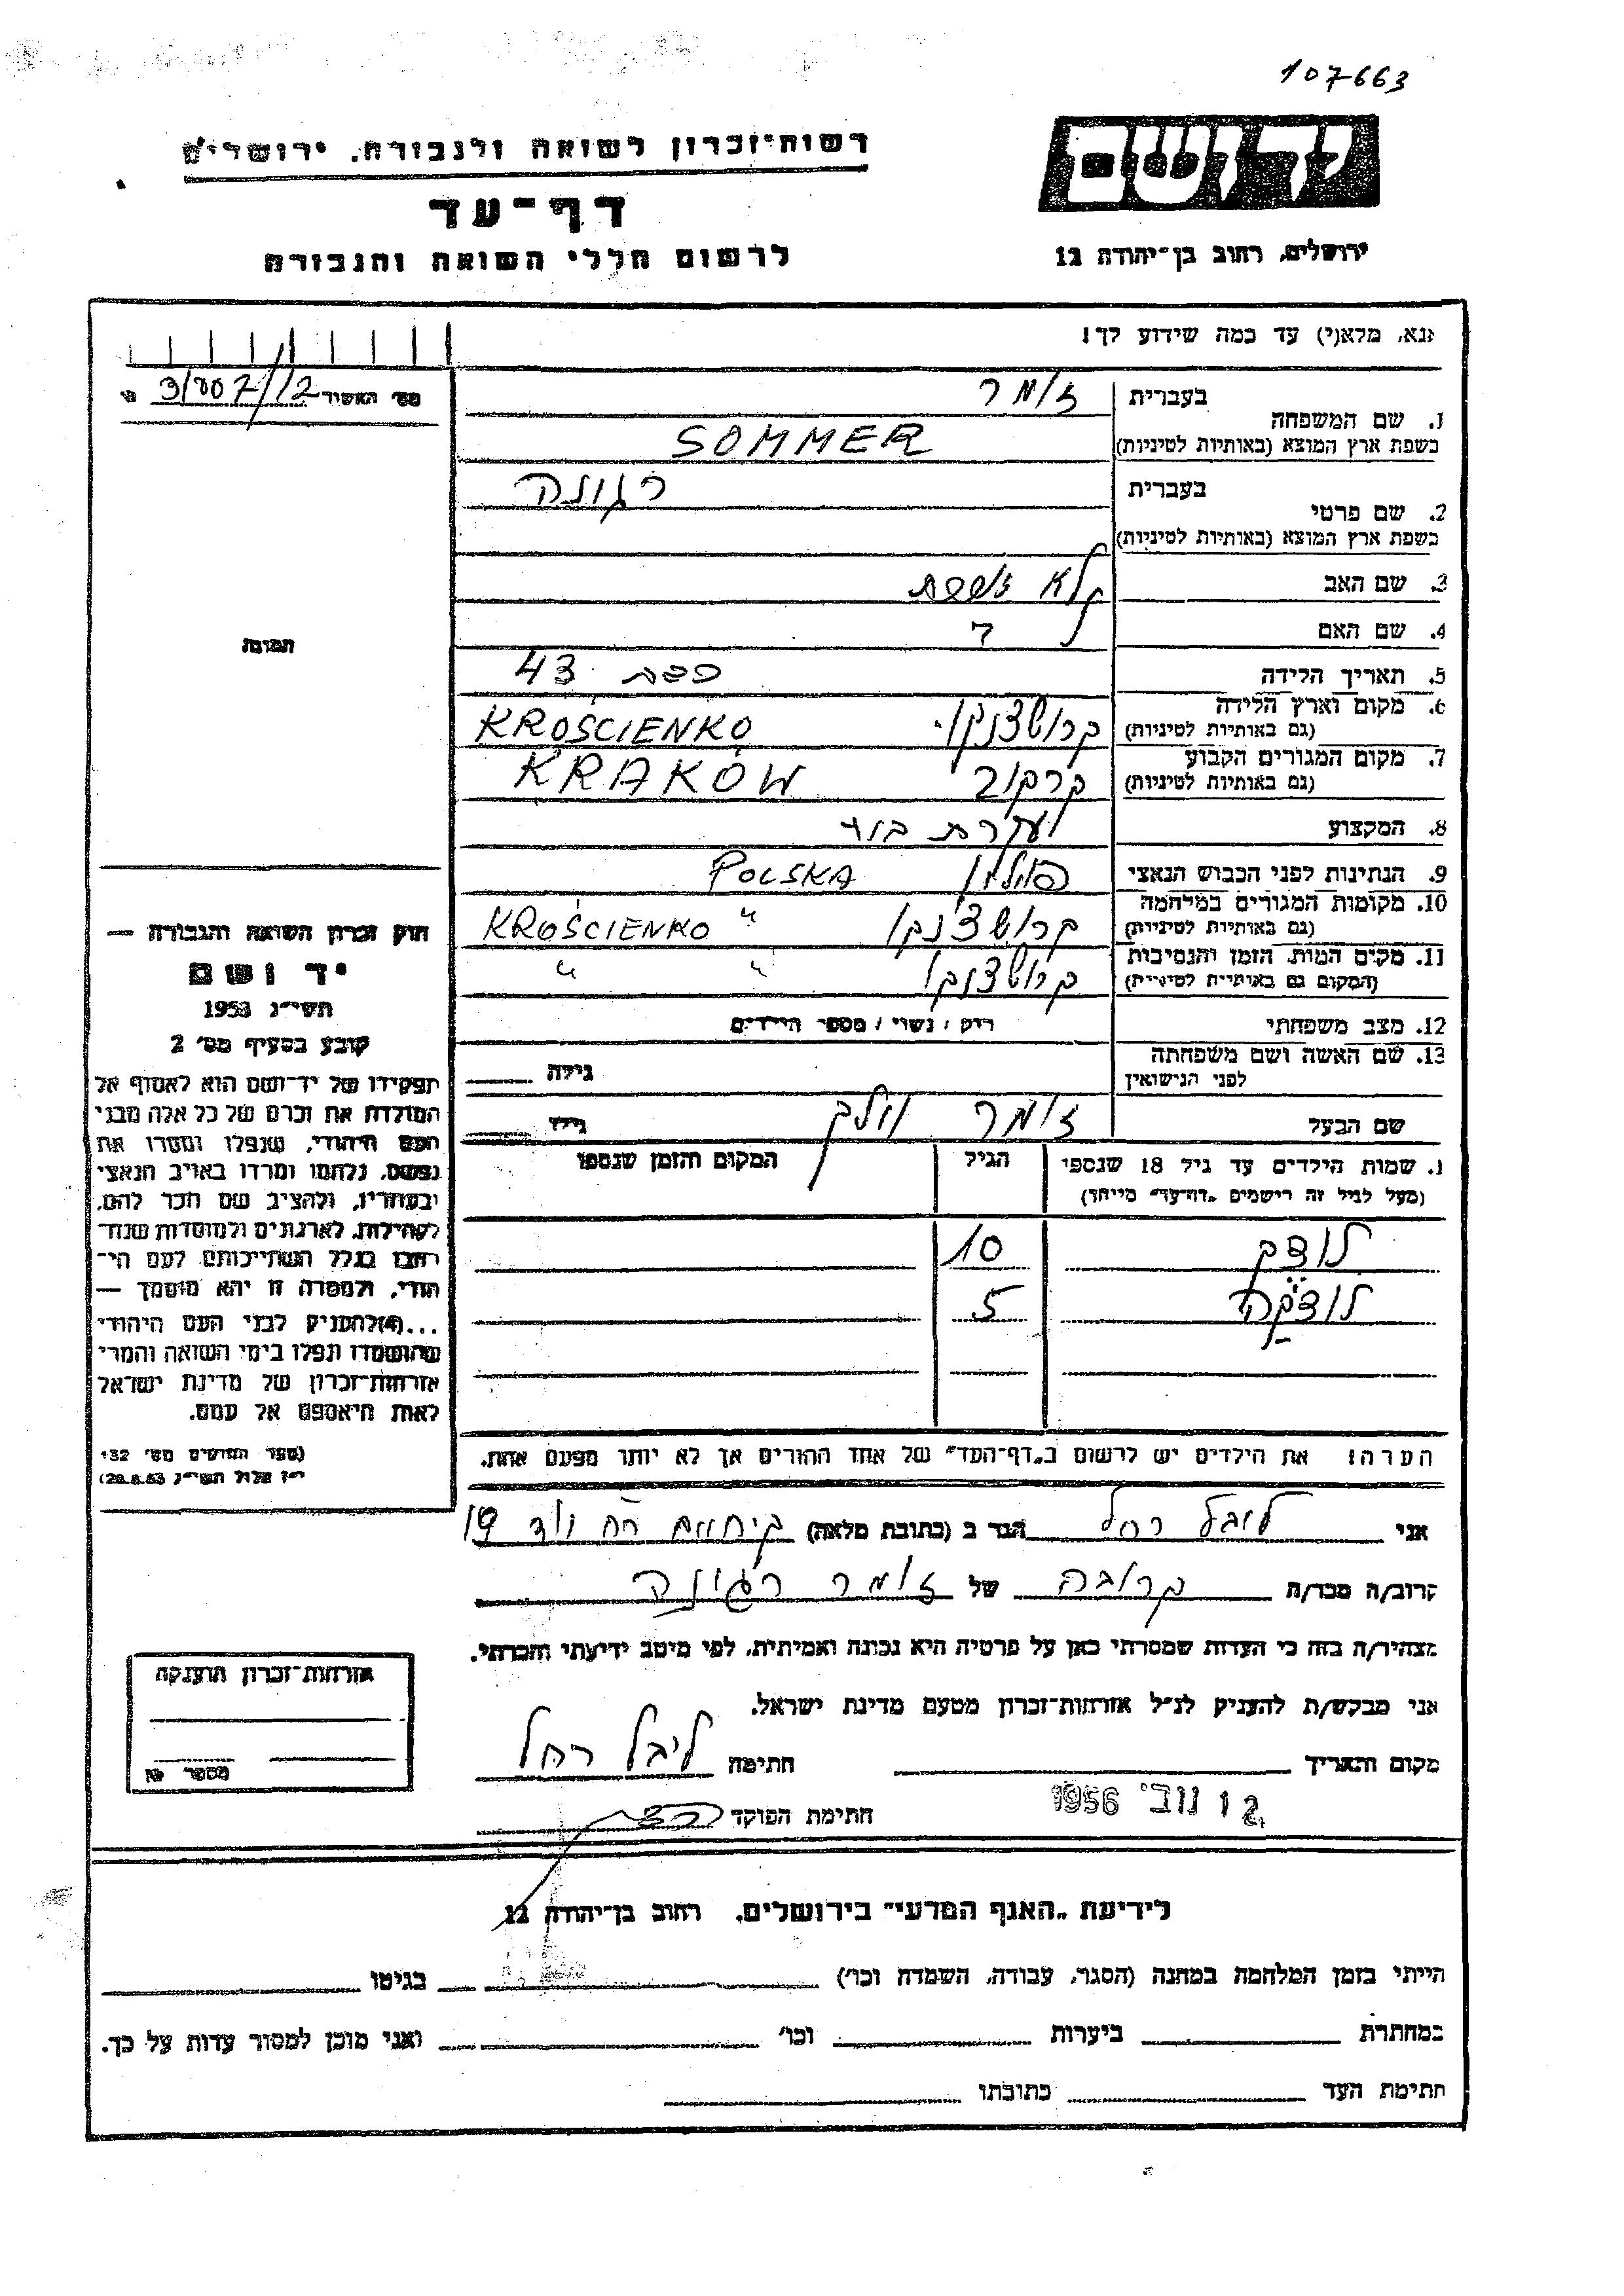 107663
רשות־זכרון לשואה ולגבורה, ירושלים
דף־עד
לרשום חללי השואה והגבורה
יד ושם
ירושלים, רחוב בן־יהודה 12
אנא, מלא(י) עד כמה שידוע לך!
מס׳ האשיד
1. שם המשפחה בעברית זומר
בשפת ארץ המוצא (באותיות לטיניות) SOMMER
2. שם פרטי בעברית רגינה
בשפת ארץ המוצא (באותיות לטיניות)
3. שם האב לא
4. שם האם
5. תאריך הלידה 43
6. מקום וארץ הלידה (גם באותיות לטיניות) קרושצנקו KROŚCIENKO
7. מקום המגורים הקבוע (גם באותיות לטיניות) קרקוב KRAKÓW
8. המקצוע עקרת בית
9. הנתינות לפני הכבוש הנאצי פולין POLSKA
10. מקומות המגורים במלחמה (גם באותיות לטיניות) קרושצנקו KROŚCIENKO "
11. מקום המות, הזמן והנסיבות (המקום גם באותיות לטיניות) קרושצנקו " "
12. מצב משפחתי רוק / נשוי / מספר הילדים
13. שם האשה ושם משפחתה לפני הנישואין גילה
שם הבעל זומר גילו
שמות הילדים עד גיל 18 שנספו הגיל המקום והזמן שנספו
(מעל לגיל זה רישמים „דף־עד״ מיוחד)
לודק 10
לודקה 5
הערה! את הילדים יש לרשום ב„דף־העד״ של אחד ההורים אך לא יותר מפעם אחת.
תמונה
חוק זכרון השואה והגבורה —
יד ושם
תשי״ג 1953
קובע בסעיף מס׳ 2
תפקידו של יד־ושם הוא לאסוף אל
המולדת את זכרם של כל אלה מבני
העם היהודי, שנפלו ומסרו את
נפשם, נלחמו ומרדו באויב הנאצי
ובעוזריו, ולהציב שם וזכר להם,
לקהילות, לארגונים ולמוסדות שנח־
רבו בגלל השתייכותם לעם הי־
הודי, ולמטרה זו יהא מוסמך —
...(4)להעניק לבני העם היהודי
שהושמדו ונפלו בימי השואה והמרי
אזרחות־זכרון של מדינת ישראל
לאות היאספם אל עמם.
(ספר החוקים מס׳ 132
י״ז אלול תשי״ג 28.8.53)
אני ליבל רחל הגר ב (כתובת מלאה) 19
קרוב/ה מכר/ה קרובה של זומר רגינה
מצהיר/ה בזה כי העדות שמסרתי כאן על פרטיה היא נכונה ואמיתית, לפי מיטב ידיעתי והכרתי.
אני מבקש/ת להעניק לנ״ל אזרחות־זכרון מטעם מדינת ישראל.
מקום ותאריך חתימה ליבל רחל
12 נוב׳ 1956
חתימת הפוקד
אזרחות־זכרון הוענקה
מספר
לידיעת „האגף המדעי״ בירושלים, רחוב בן־יהודה 12
הייתי בזמן המלחמה במחנה (הסגר, עבודה, השמדה וכו׳) בגיטו
במחתרת ביערות וכו׳ ואני מוכן למסור עדות על כך.
חתימת העד כתובתו